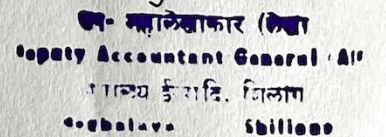 उप- महालेखाकार (लेखा
Deputy Accountant General
मेघालय ईत्यादि. शिलांग
Meghalaya Shillong